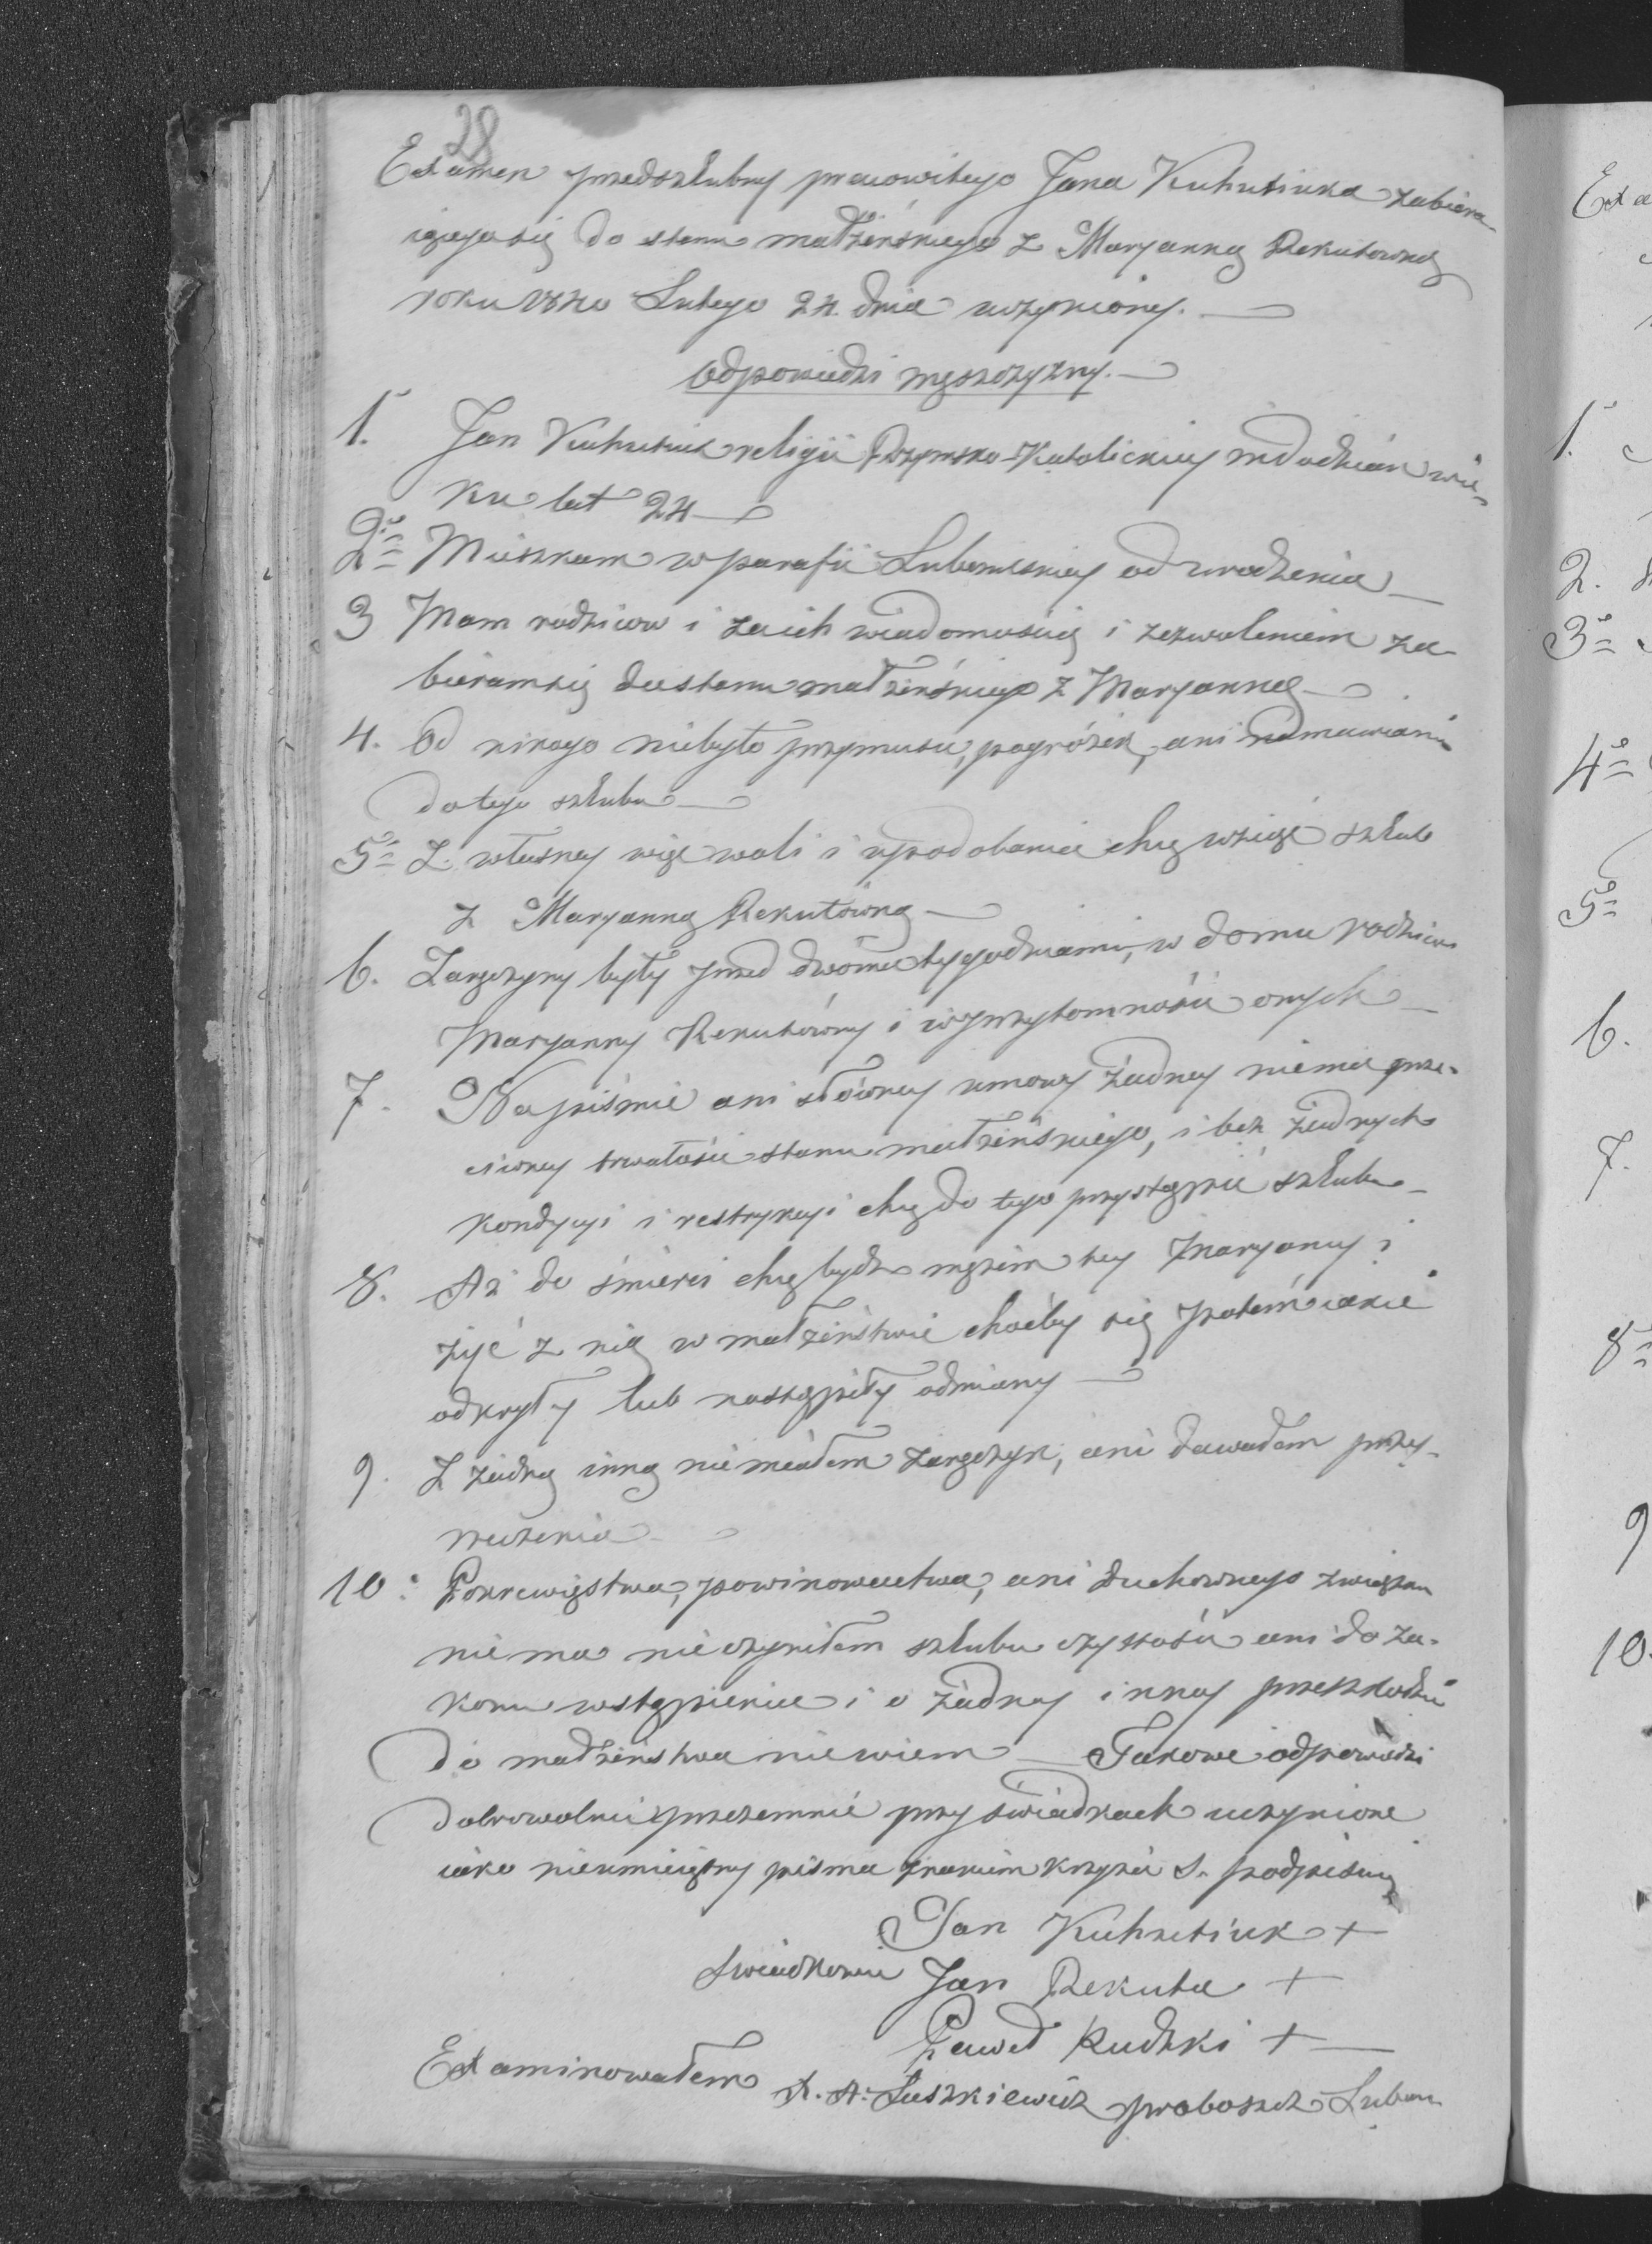 28
Examen przedszlubny pracowitego Jana Kuhutiuka zabiera-
iącego się do stanu małżeńskiego z Maryanną Rekutowną
roku 1840 Lutego 24 dnia uczyniony.
Odpowiedzi męszczyzny.
1. Jan Kuhutiuk religii Rzymsko-Katolickiey młodzian wie-
ku lat 24
2e Mieszkam w parafii Lubomlskiey od urodzenia
3 Mam rodziców i za ich wiadomością i zezwoleniem za-
bieram się do stanu małżeńskiego z Maryanną
4. Od nikogo niebyło przymusu, pogróżek, ani namawiania
do tego szlubu
5e Z własney więc woli i upodobania chcę wziąść szlub
z Maryanną Rekutówną
6. Zaręczyny były przed dwóma tygodniami, w domu rodziców
Maryanny Rekutówny i w przytomności onych
7. Na piśmie ani słówney umowy żadney niema prze-
ciwney trwałości stanu małżeńskiego, i bez żadnych
kondycyi i restrykcyi chcę do tego przystąpić szlubu
8. Aż do śmierci chcę bydź mężem tey Maryanny i
żyć z nią w małżeństwie choćby się potém iakie
odkryły lub nastąpiły odmiany
9. Z żadną inną nie miałem zaręczyn, ani dawałem przy-
rzeczenia
10: Pokrewięstwa, powinowactwa, ani duchownego związku
niema nieczyniłem szlubu czystości ani do za-
konu wstąpienia i o żadney inney przeszkodzie
do małżeństwa niewiem Takowe odpowiedzi
dobrowolnie przezemnie przy świadkach uczynione
iako nieumieiętny pisma znakiem krzyża S. podpisuię
Jan Kuhutiuk +
Swiadkowie Jan Rekuta +
Paweł Rudzki +
Examinowałem X. A. Łuszkiewicz proboszcz Lubom
Exa
1.
2.
3e
4e
5e
6.
7.
8e
9
10.